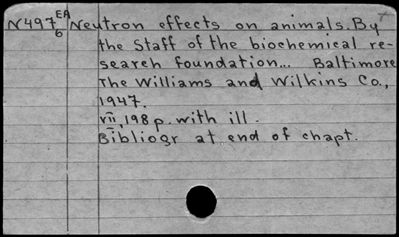 N497 EA 6 Neutron effects on animals. By
the Staff of the biochemical re-
search foundation... Baltimore
The Williams and Wilkins Co.,
1947.
VII, 198 p. with ill.
Bibliogr at end of chapt.